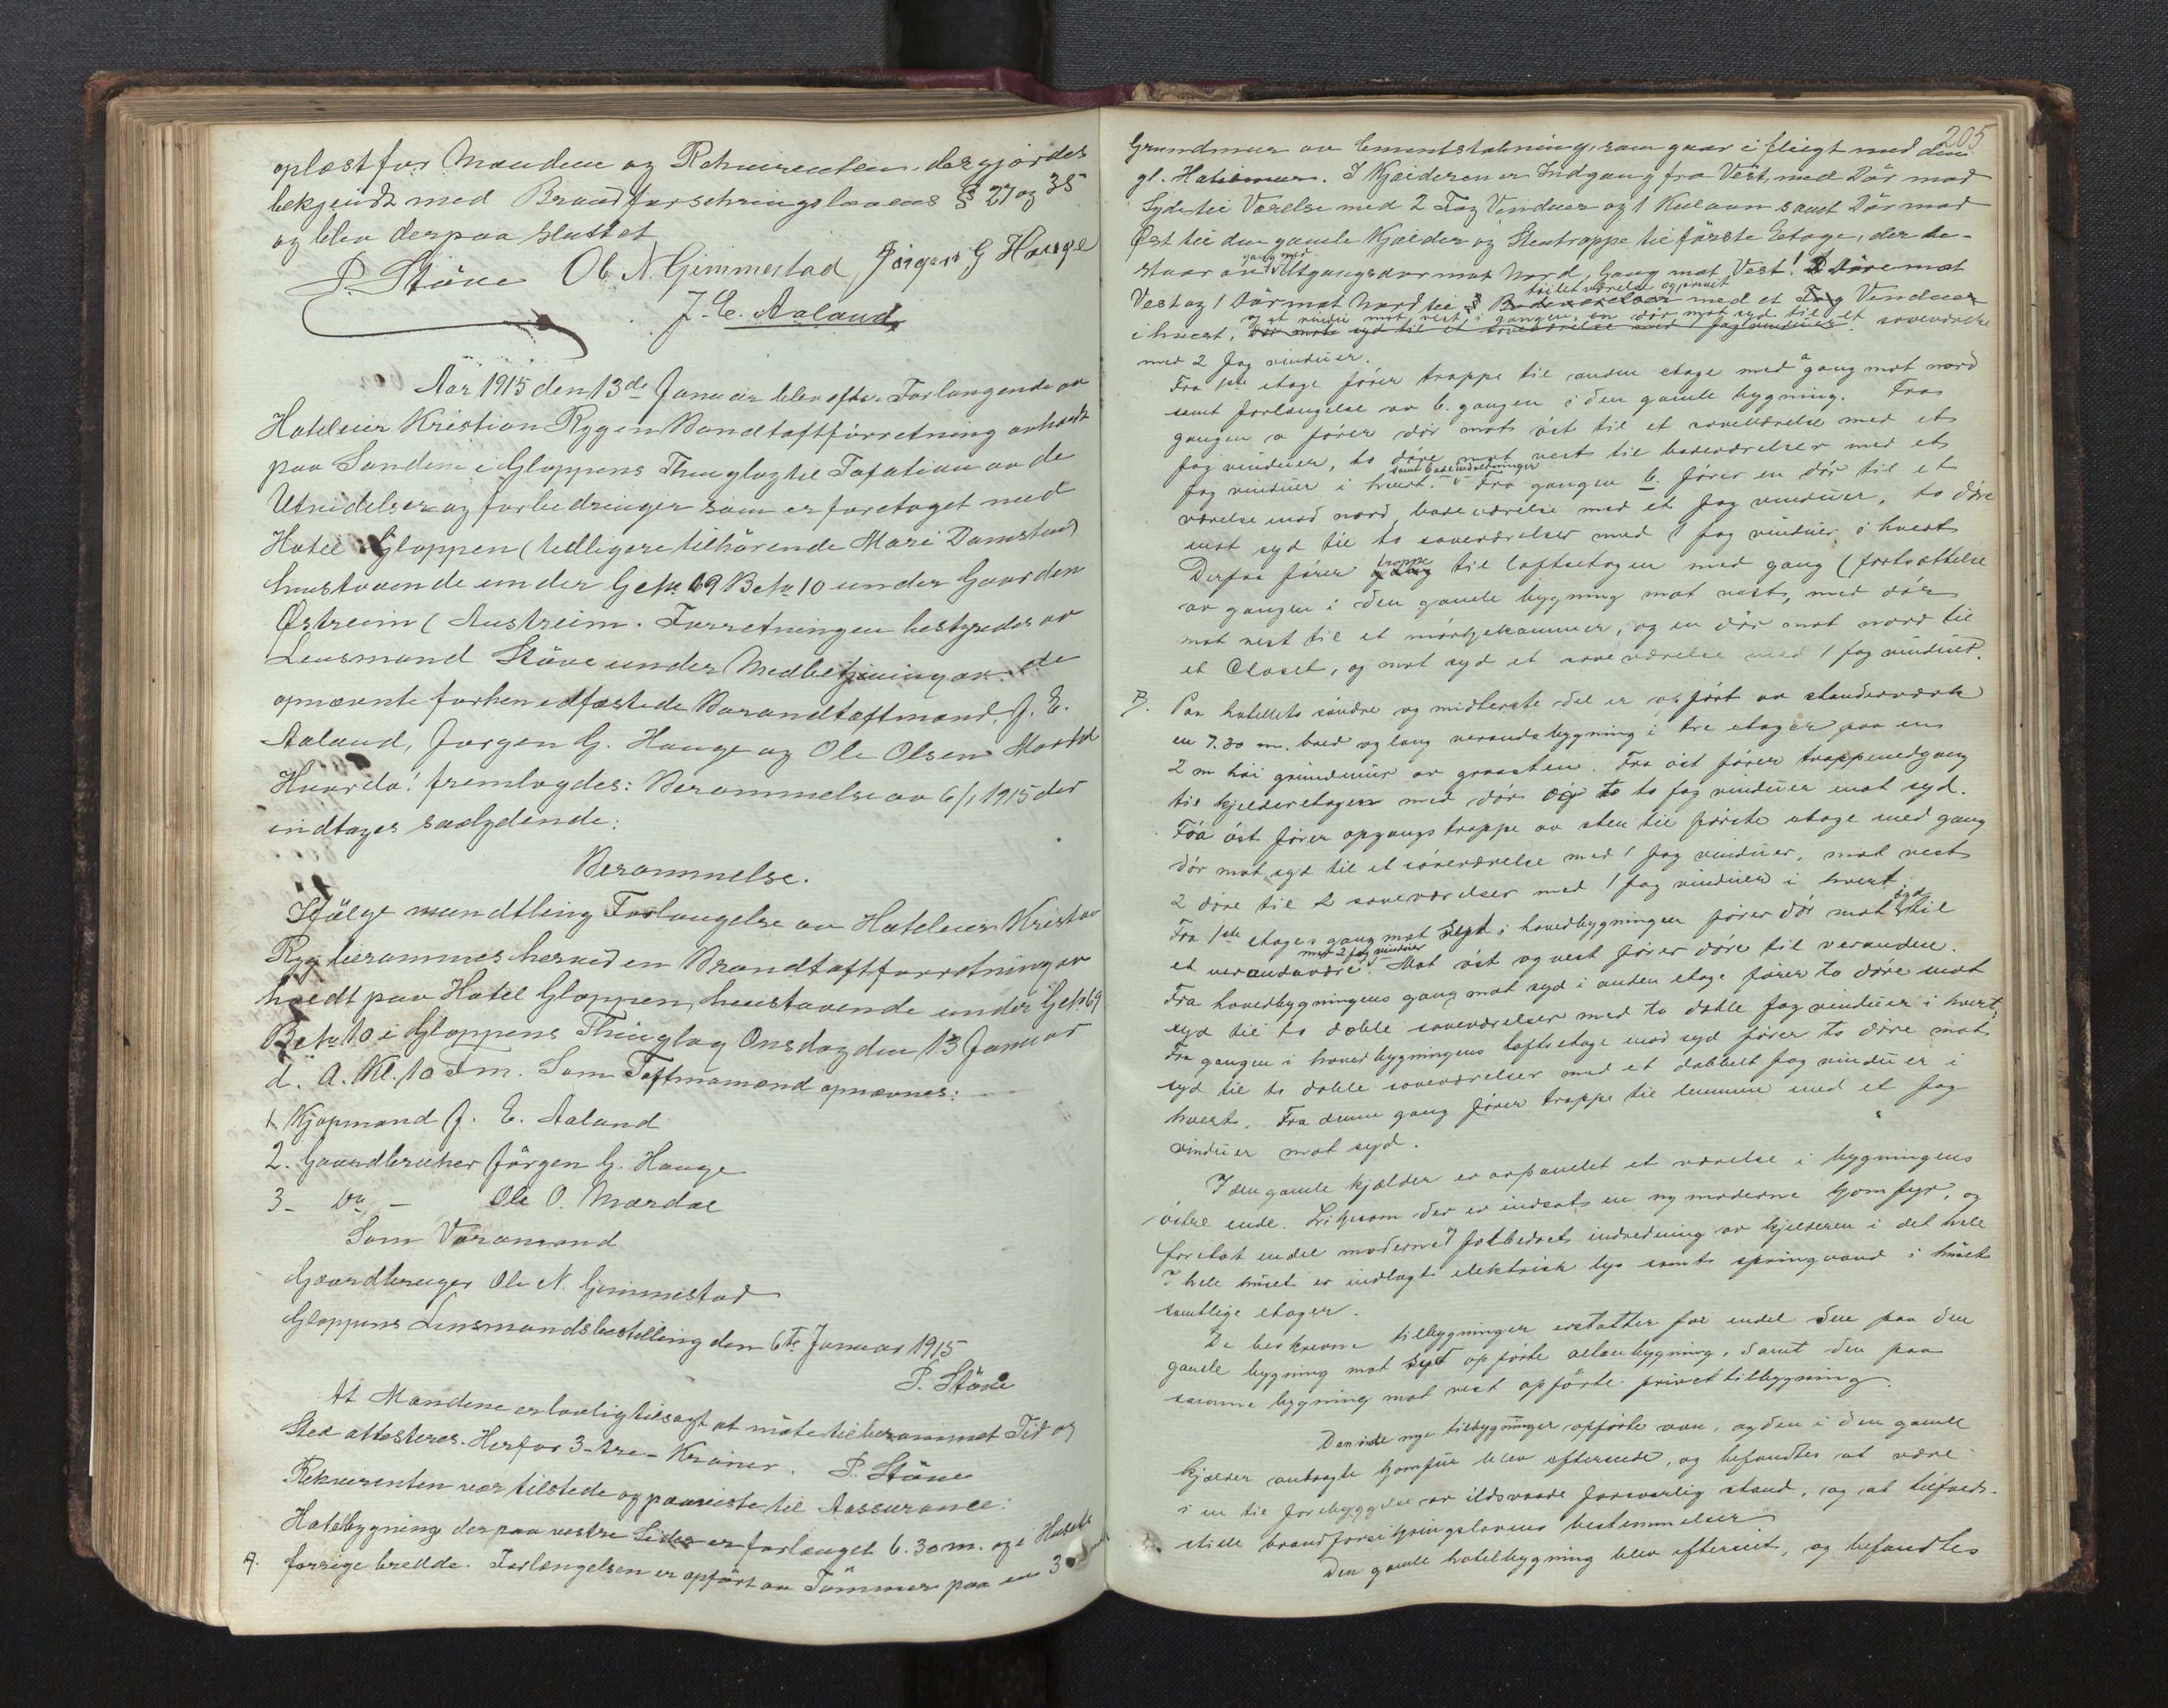 oplæst for Mændene og Rekvirenten, der gjordes
bekjendt med Brandforsikringslovens § 27 og 35
og blev derpaa sluttet
P. Støve Ole N. Gimmestad Jørgen G Hauge
J. E. Aaland
Aar 1915 den 13de Januar blev efter Forlangende av
Hoteleier Kristian Ryg en Brandtaxtforretning avholdt
paa Sandene i Gloppens Thinglag til Taxation av de
Utvidelser og forbedringer som er foretaget med
Hotel Gloppen (tidligere tilhörende Mari Damstad)
husstaaende under G No 69 B No 10 under Gaarden
Østreim (Austreim. Forretningen bestyredes av
Lensmand Støve under Medbetjening av de
opnævnte forhen edfæstede Brandtaxtmænd, J. E.
Aaland, Jørgen G. Hauge og Ole Olsen Mardal
Hvorda! fremlagdes: Berammelse av 6/1 1915 der
indtages saalydende:
Berammelse.
Ifølge mundtling Forlangelse av Hoteleier Kristian
Ryg berammes herved en Brandtaxtforretning av
holdt paa Hotel Gloppen, husstaaende under G No 69
B No 10 i Gloppens Thinglag Onsdag den 13 Januar
d. A. Kl. 10 Fm. Som Taxtmænd opnævnes:
1. Kjøpmand J. E. Aaland
2. Gaardbruker Jörgen G. Hauge
3 - Do - Ole O. Mardal
Som Varamand
Gaardbruger Ole N. Gimmestad
Gloppens Lensmandsbestilling den 6te Januar 1915
P. Støve
At Mændene er lovlig tilsagt at møte til berammet Tid og
Sted attesteres. Herfor 3 - tre - Kroner. P. Støve
Rekvirenten var tilstede og paaviste til Assurance:
A. Hotelbygning der paa vestre Side er forlænget 6.30 m. og i Husets
forrige bredde. Forlængelsen er opført av Tømmer paa en 3
205
Grundmur av Cementstøbning, som gaar i flugt med den
gl. Hotelmur. I Kjælderen er Indgang fra Vest, med Dör mod
Syd til Værelse med 2 Fag Vinduer og 1 Kulovn samt Dör mod
Øst til den gamle Kjælder og Stentrappe til första Etage, der be-
gang med
staar av Utgangsdør mot Nord, Gang mot Vest! Døre mot
toilet værelse og privet
Vest og 1 Dör mot Nord til Badeværelser med et Fag Vinduer
og et vindu mot vest i gangen, en dør mot syd til et
i hvert, dør mot syd til et soveværelse med 1 fag vinduer. soveværelse
med 2 fag vinduer.
Fra 1ste etage fører trappe til anden etage med a gang mot nord
samt forlængelse av b. gangen i den gamle bygning. Fra
gangen a fører dør mot øst til et soveværelse med et
fag vinduer, to døre mot vest til badeværelser med et
samt badeindretninger
fag vinduer i hvert. Fra gangen b. fører en dör til et
værelse mod nord, badeværelse med et fag vinduer, to døre
mot syd til to soveværelser med 1 fag vinduer i hvert
trappe
Derfra fører gang til loftsetagen med gang (fortsættelse
av gangen i den gamle bygning mot vest, med dör
mot vest til et mørkekammer, og en dör mot nord til
et Closet, og mot syd et soveværelse med 1 fag vinduer.
B. Paa hotellets søndre og midterste del er opført av standerværk
en 7.30 m. bred og lang verandabygning i tre etager paa en
2 m høi grundmur av graasten. Fra øst fører trappenedgang
til kjelderetagen med dör og to fag vinduer mot syd.
Fra øst fører opgangstrappe av sten til første etage med gang
dör mot syd til et soveværelse med 1 fag vinduer, mot vest
2 døre til 2 soveværelser med 1 fag vinduer i hvert.
syd
Fra 1ste etages gang mot syd i hovedbygningen fører dör mot til
med 2 fag vinduer
et verandavære. Mot øst og vest fører døre til verandaen.
Fra hovedbygningens gang mot syd i anden etage fører to døre mot
syd til to doble soveværelser med to doble fag vinduer i hvert,
Fra gangen i hovedbygningens loftsetage mod syd fører to døre mot
syd til to doble soveværelser med et dobbelt fag vinduer i
hvert. Fra denne gang fører trappe til lemmen med et fag
vinduer mot syd.
I den gamle kjælder er avpanelet et værelse i bygningens
østre ende. Likesom der er indsat en ny moderne komfyr, og
foretat endel moderne og forbedret indredning av kjelderen i det hele
I hele huset er indlagt elektrisk lys samt springvand i husets
samtlige etager.
De beskrevne tilbygninger erstatter for endel den paa den
gamle bygning mot syd opførte altanbygning, samt den paa
samme bygning mot vest opførte privettilbygning.
nye tilbygninger opførte ovn, og den i den gamle
kjælder anbragte komfur blev efterseede, og befandtes at være
i en til forebyggelse av ildsvaade forsvarlig stand, og at tilfreds-
stille brandforsikringslovens bestemmelser
Den gamle hotelbygning blev efterseet, og befandtes